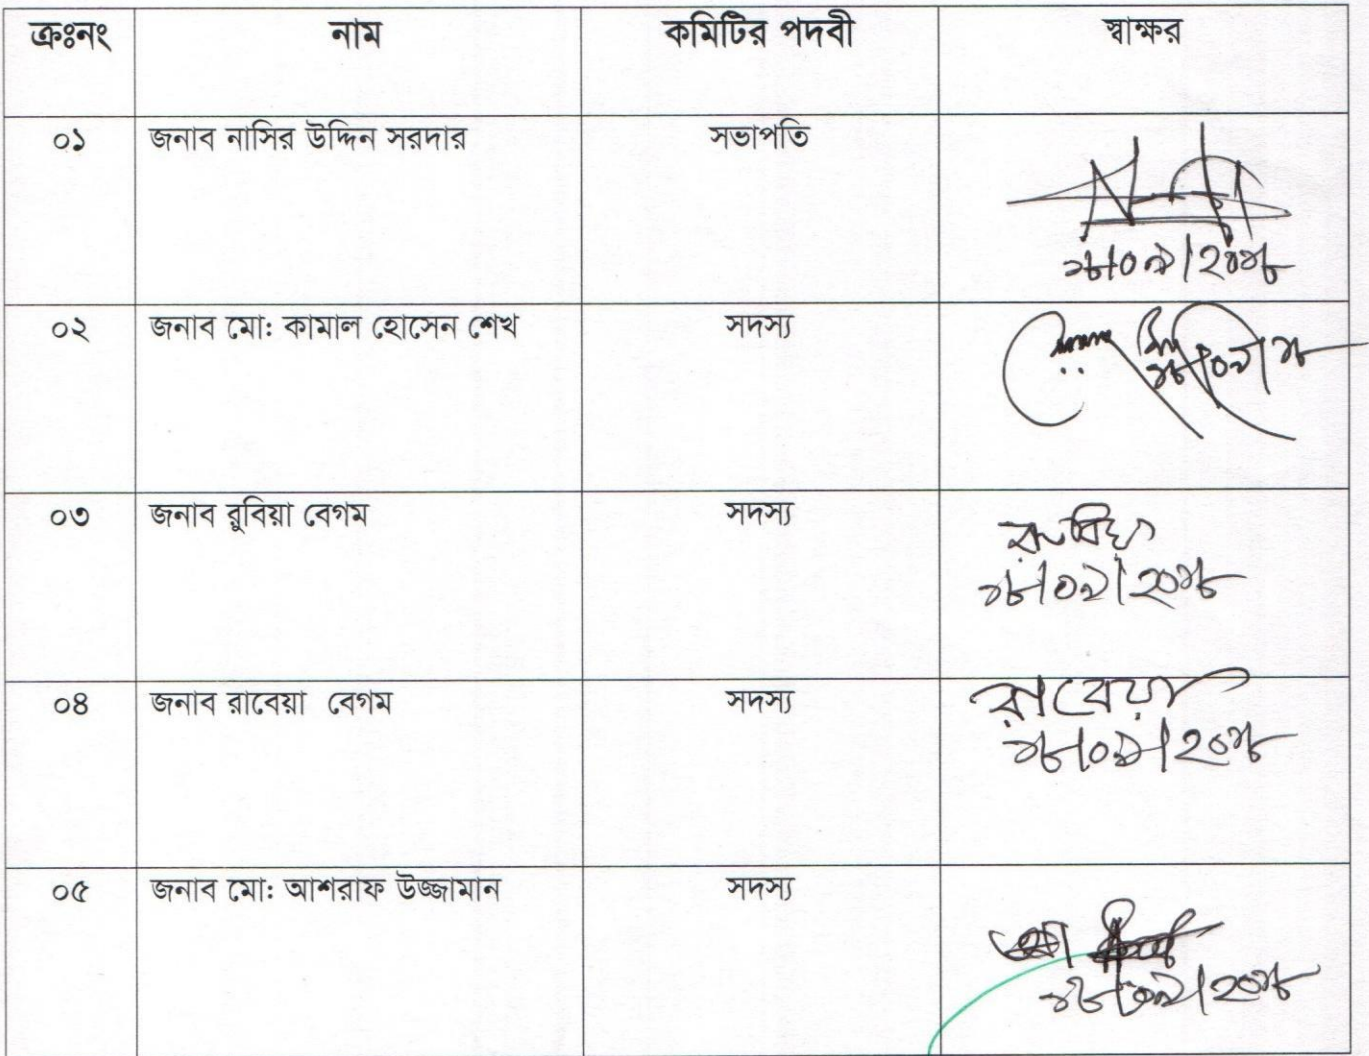 ক্রঃনং নাম কমিটির পদবী স্বাক্ষর
০১ জনাব নাসির উদ্দিন সরদার সভাপতি
১৮/০৯/২০১৮
০২ জনাব মো: কামাল হোসেন শেখ সদস্য
১৮/০৯/১৮
০৩ জনাব রুবিয়া বেগম সদস্য রুবিয়া
১৮/০৯/২০১৮
০৪ জনাব রাবেয়া বেগম সদস্য রাবেয়া
১৮/০৯/২০১৮
০৫ জনাব মো: আশরাফ উজ্জামান সদস্য
১৮/০৯/২০১৮